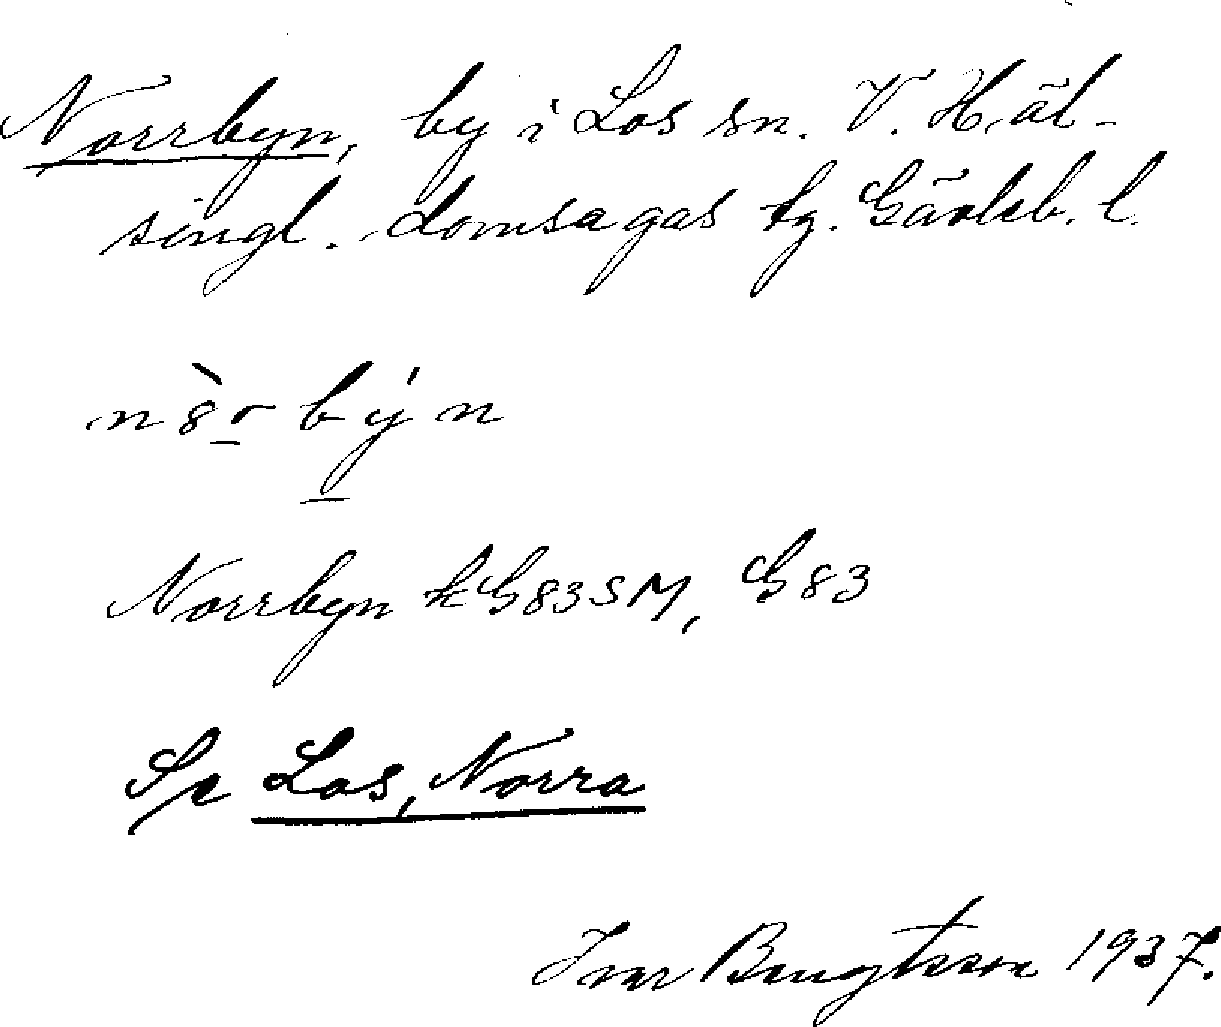 Norrbyn, by i Los sn. V. Häl-
singl. domsagas tg. Gävleb. l.
Norrbyn kG83SM, G83
Se Los, Norra
Ivar Bengtsson 1937.